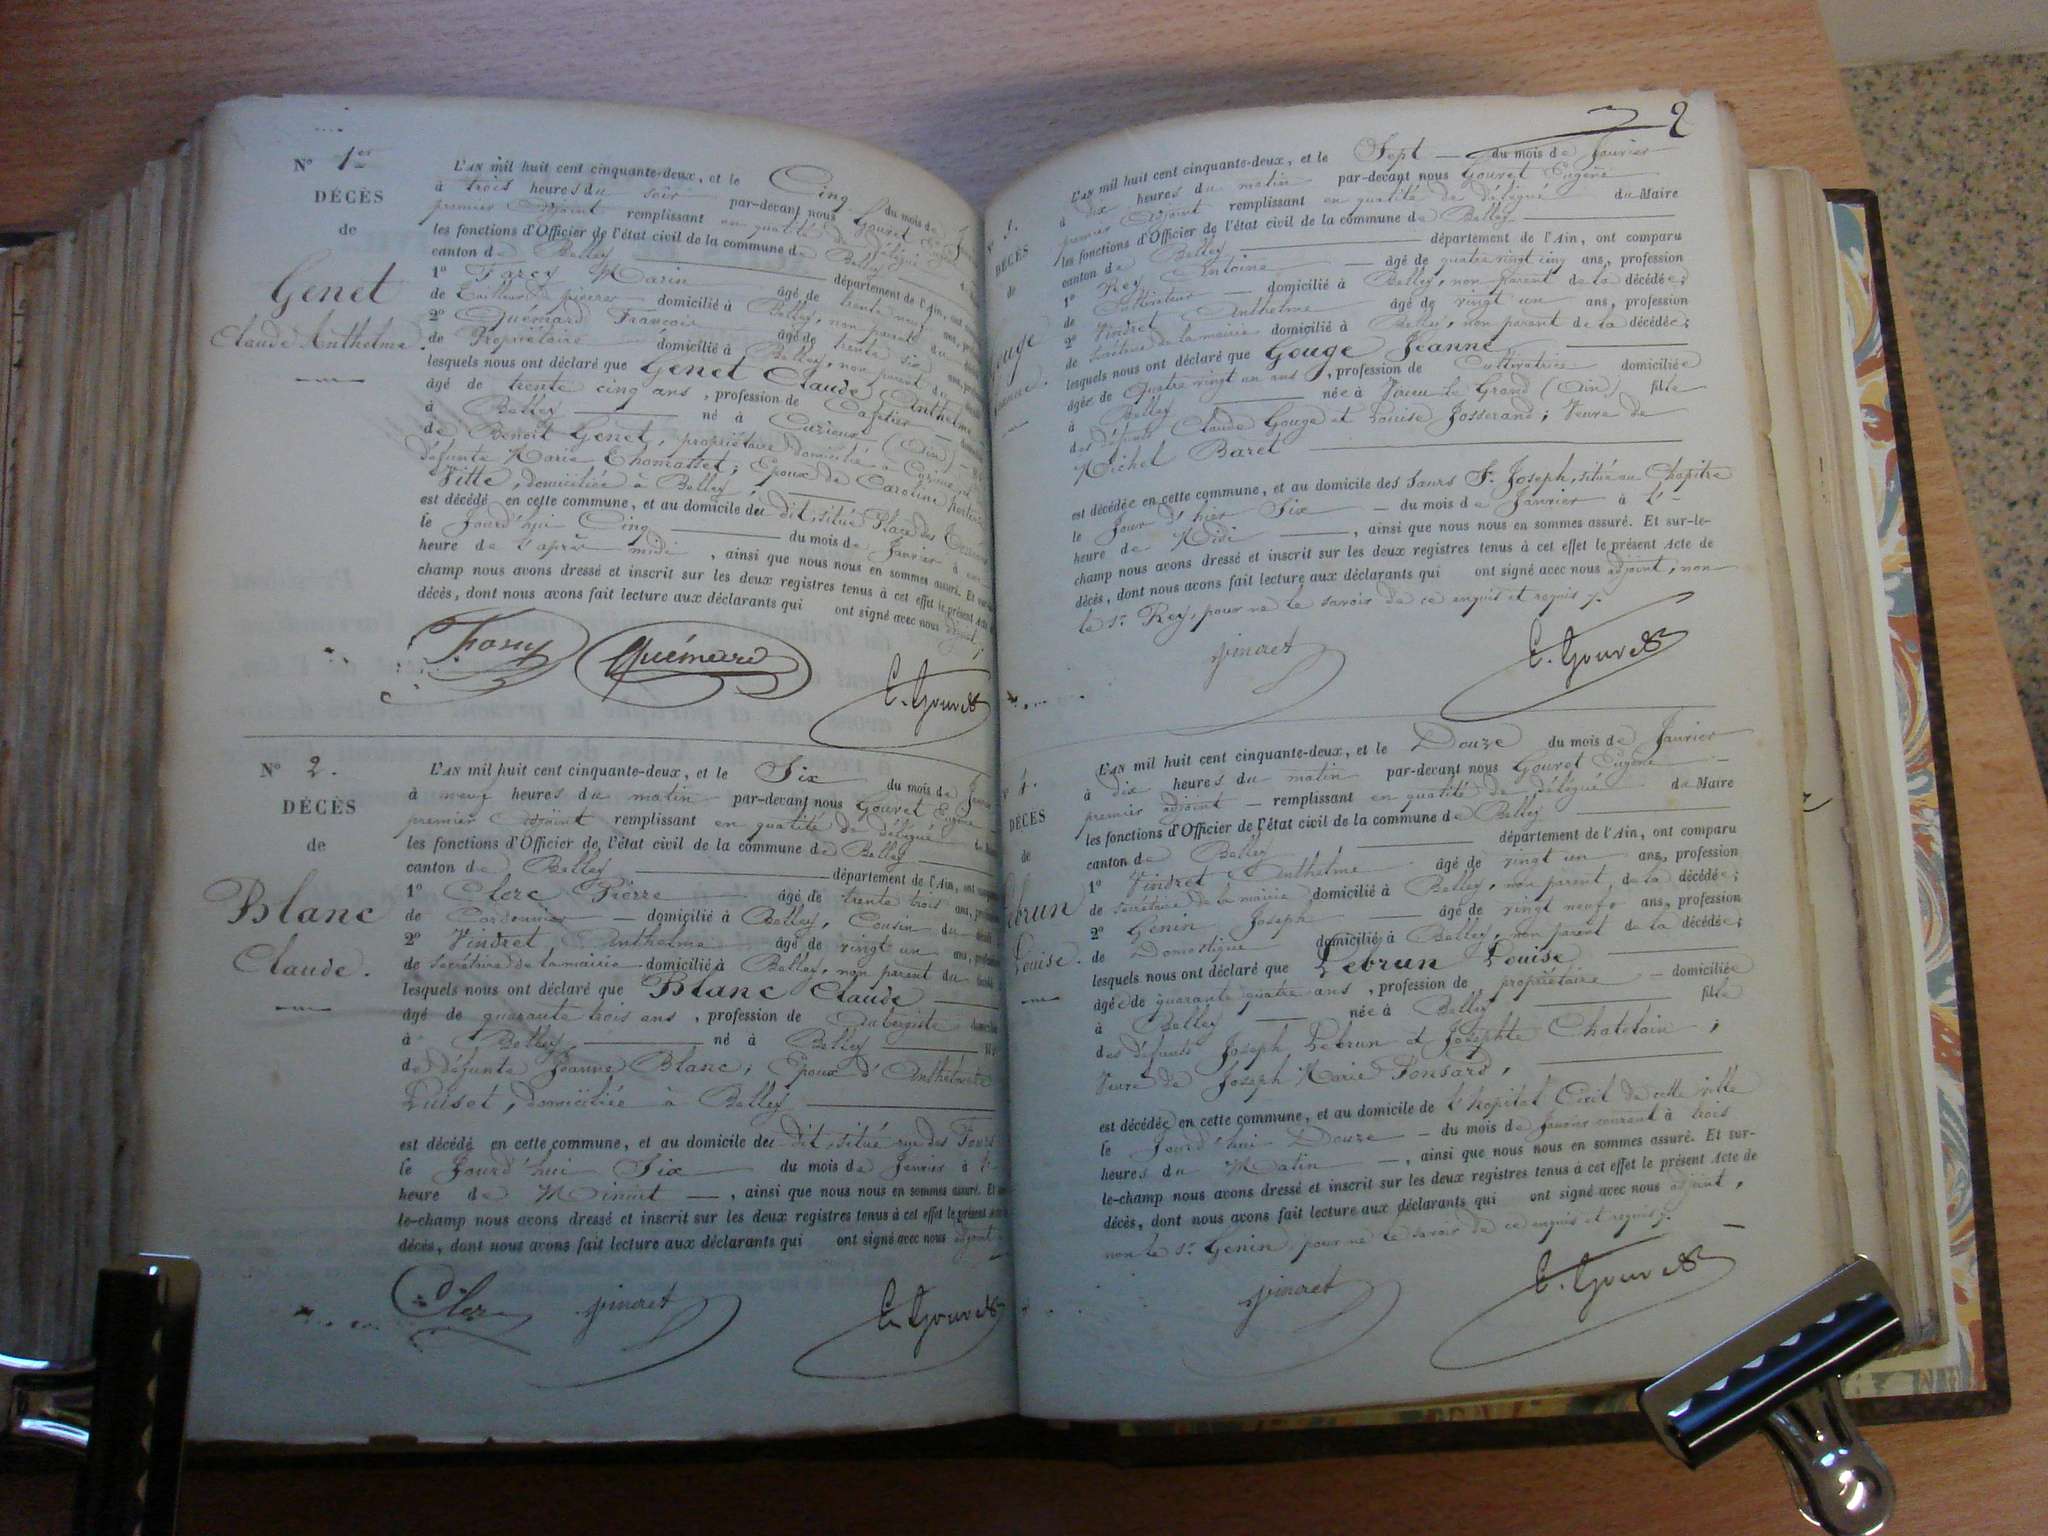 N° 1er
DÉCÈS
de
Genet
Claude Anthelme
L'AN mil huit cent cinquante-deux, et le Cinq du mois de
à trois heures du soir par-devant nous Gouret
premier Adjoint remplissant en qualité de délégué
les fonctions d'Officier de l'état civil de la commune de Belley
canton de Belley département de l'Ain, ont
1° Farcy Marin âgé de trente neuf ans,
de Tailleur de pierres domicilié à Belley, non parent du
2° Quemard François âgé de trente six ans,
de Propriétaire domicilié à Belley, non parent du
lesquels nous ont déclaré que Genet Claude Anthelme
âgé de trente cinq ans, profession de Cafetier
à Belley né à Cuzieux (Ain)
de Benoît Genet, propriétaire domicilié à Cuzieux, et
défunte Marie Thomasset; Epoux de Caroline
Vitte, domiciliée à Belley
est décédé en cette commune, et au domicile du dit, situé Place des
le Jourd'hui Cinq du mois de Janvier à
heure de l'après midi, ainsi que nous nous en sommes assuré. Et
champ nous avons dressé et inscrit sur les deux registres tenus à cet effet le présent Acte de
décès, dont nous avons fait lecture aux déclarants qui ont signé avec nous adjoint,
Farcy Quémard E. Gouret
N° 2.
DÉCÈS
de
Blanc
Claude.
L'AN mil huit cent cinquante-deux, et le Six du mois de
à neuf heures du matin par-devant nous Gouret Eugène
premier Adjoint remplissant en qualité de délégué
les fonctions d'Officier de l'état civil de la commune de Belley
canton de Belley département de l'Ain, ont
1° Clerc Pierre âgé de trente trois ans,
de Cordonnier domicilié à Belley, Cousin du
2° Vindret Anthelme âgé de vingt un ans,
de secrétaire de la mairie domicilié à Belley, non parent du
lesquels nous ont déclaré que Blanc Claude
âgé de quarante trois ans, profession de Aubergiste
à Belley, né à Belley
de défunte Jeanne Blanc; Epoux d'Anthelmette
Luiset, domiciliée à Belley
est décédé en cette commune, et au domicile du dit, situé rue des
le Jourd'hui Six du mois de Janvier à
heure de Minuit, ainsi que nous nous en sommes assuré. Et
le-champ nous avons dressé et inscrit sur les deux registres tenus à cet effet le présent
décès, dont nous avons fait lecture aux déclarants qui ont signé avec nous adjoint
Clerc Vindret E. Gouret
2
3.
DÉCÈS
de
L'AN mil huit cent cinquante-deux, et le Sept du mois de Janvier
à dix heures du matin par-devant nous Gouret Eugène
premier Adjoint remplissant en qualité de délégué du Maire
les fonctions d'Officier de l'état civil de la commune de Belley
canton de Belley département de l'Ain, ont comparu
1° Rey Antoine âgé de quatre vingt cinq ans, profession
de Cultivateur domicilié à Belley, non parent de la décédée;
2° Vindret Anthelme âgé de vingt un ans, profession
de secrétaire de la mairie domicilié à Belley, non parent de la décédée;
lesquels nous ont déclaré que Gouge Jeanne
âgée de Quatre vingt un ans, profession de Cultivatrice domiciliée
à Belley née à Virieu le Grand (Ain) fille
des défunts Claude Gouge et Louise Josserand; Veuve de
Michel Baret
est décédée en cette commune, et au domicile des Sœurs St. Joseph, situé au Chapitre
le Jour d'hier Six du mois de Janvier à l'
heure de Midi, ainsi que nous nous en sommes assuré. Et sur-le-
champ nous avons dressé et inscrit sur les deux registres tenus à cet effet le présent Acte de
décès, dont nous avons fait lecture aux déclarants qui ont signé avec nous adjoint, non
le sr. Rey, pour ne le savoir de ce enquis et requis
Vindret E. Gouret
4.
DÉCÈS
de
Lebrun
Louise.
L'AN mil huit cent cinquante-deux, et le Douze du mois de Janvier
à dix heures du matin par-devant nous Gouret Eugène
premier adjoint remplissant en qualité de délégué du Maire
les fonctions d'Officier de l'état civil de la commune de Belley
canton de Belley département de l'Ain, ont comparu
1° Vindret Anthelme âgé de vingt un ans, profession
de secrétaire de la mairie domicilié à Belley, non parent de la décédée;
2° Genin Joseph âgé de vingt neuf ans, profession
de Domestique domicilié à Belley, non parent de la décédée;
lesquels nous ont déclaré que Lebrun Louise
âgée de quarante quatre ans, profession de propriétaire domiciliée
à Belley née à Belley fille
des défunts Joseph Lebrun et Josephte Chatelain;
Veuve de Joseph Marie Ponsard,
est décédée en cette commune, et au domicile de l'hopital Civil de cette ville
le Jourd'hui Douze du mois de Janvier courant à trois
heures du Matin, ainsi que nous nous en sommes assuré. Et sur-
le-champ nous avons dressé et inscrit sur les deux registres tenus à cet effet le présent Acte de
décès, dont nous avons fait lecture aux déclarants qui ont signé avec nous adjoint,
non le sr. Genin, pour ne le savoir de ce enquis et requis
Vindret E. Gouret